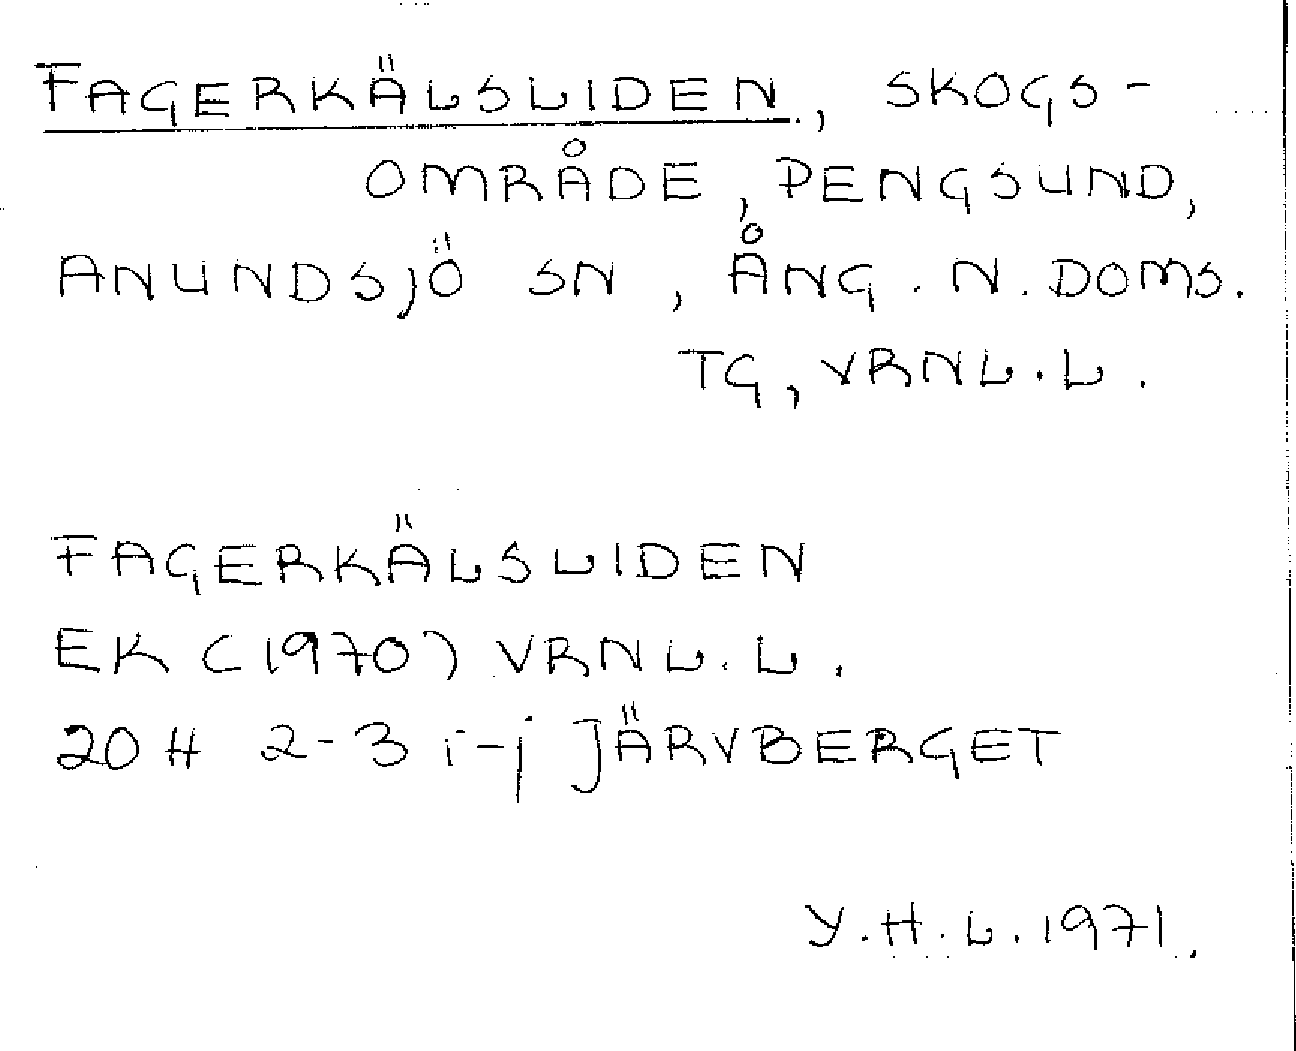 FAGERKÄLSLIDEN, SKOGS-
OMRÅDE, PENGSUND,
ANUNDSJÖ SN, ÅNG. N. DOMS.
TG, VRNL.L.
FAGERKÄLSLIDEN
EK (1970) VRNL.L.
20 H 2-3 i-j JÄRVBERGET
Y.H.L. 1971.